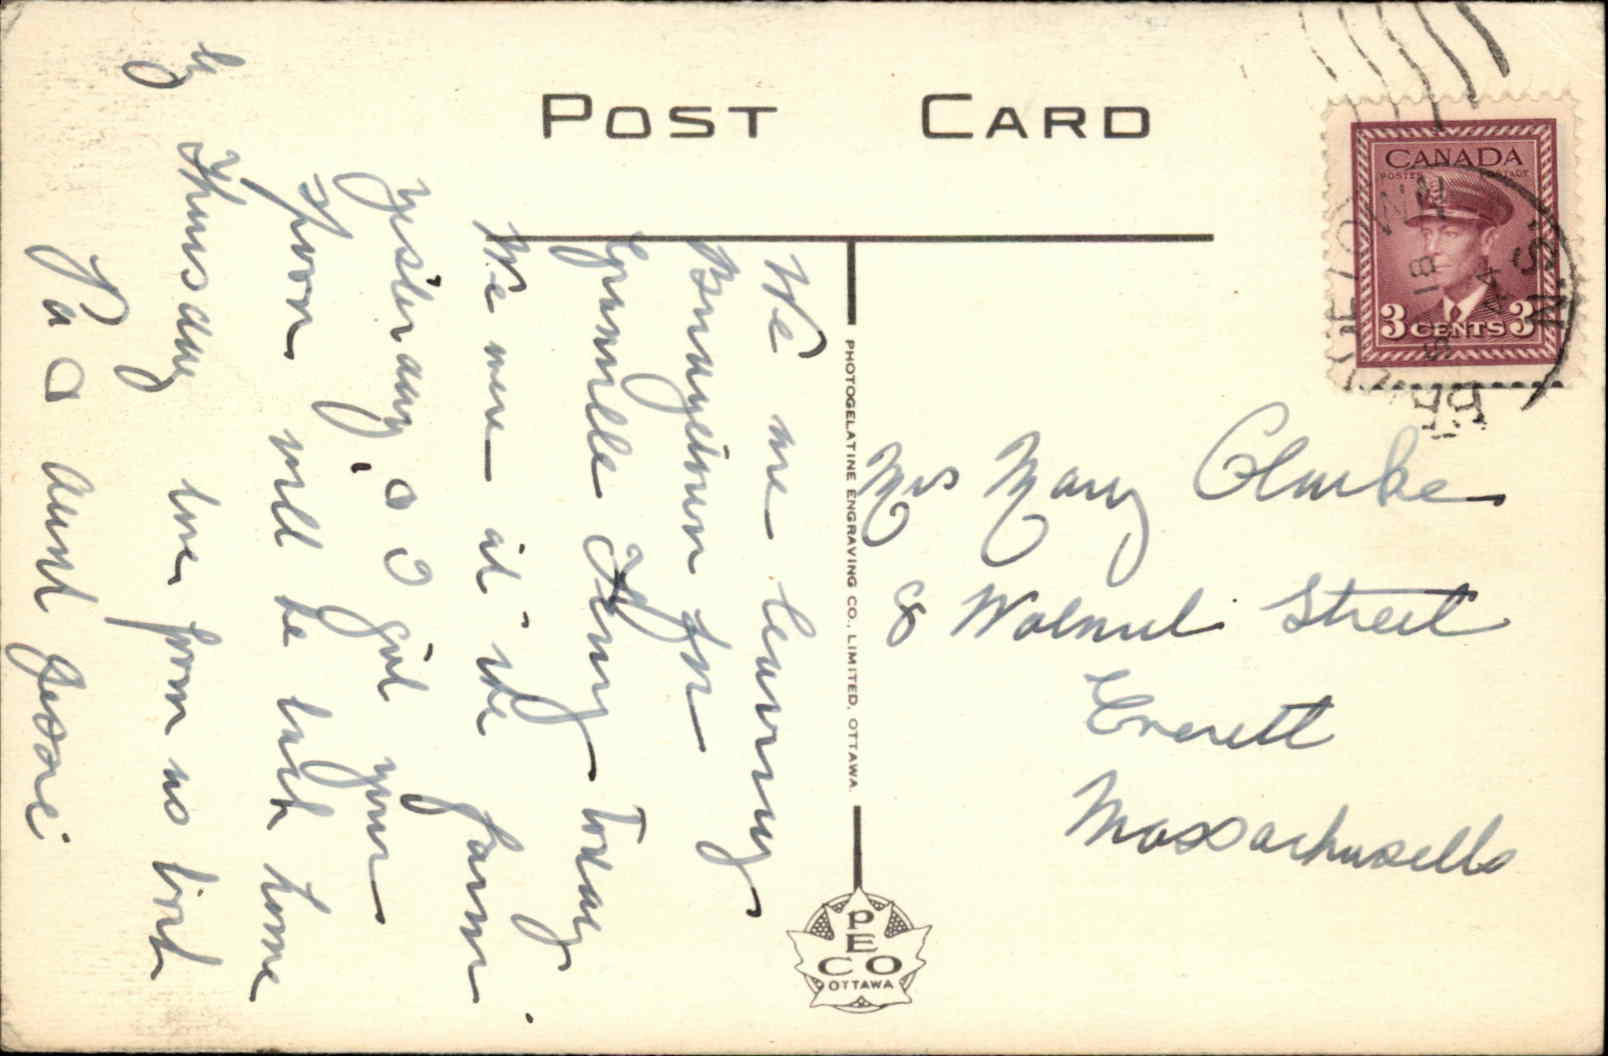 POST CARD
CANADA
POSTES POSTAGE
3 CENTS 3
BRIDGETOWN
18
N.S.
Mrs Mary Clarke
8 Walnut Street
Everett
Massachusetts
PHOTOGELATINE ENGRAVING CO., LIMITED, OTTAWA.
PECO
OTTAWA
We are leaving
for
Granville Ferry Today
We were at the farm
yesterday. I got your
will be back home
by Thursday love from us both
Pa & Aunt Jessie